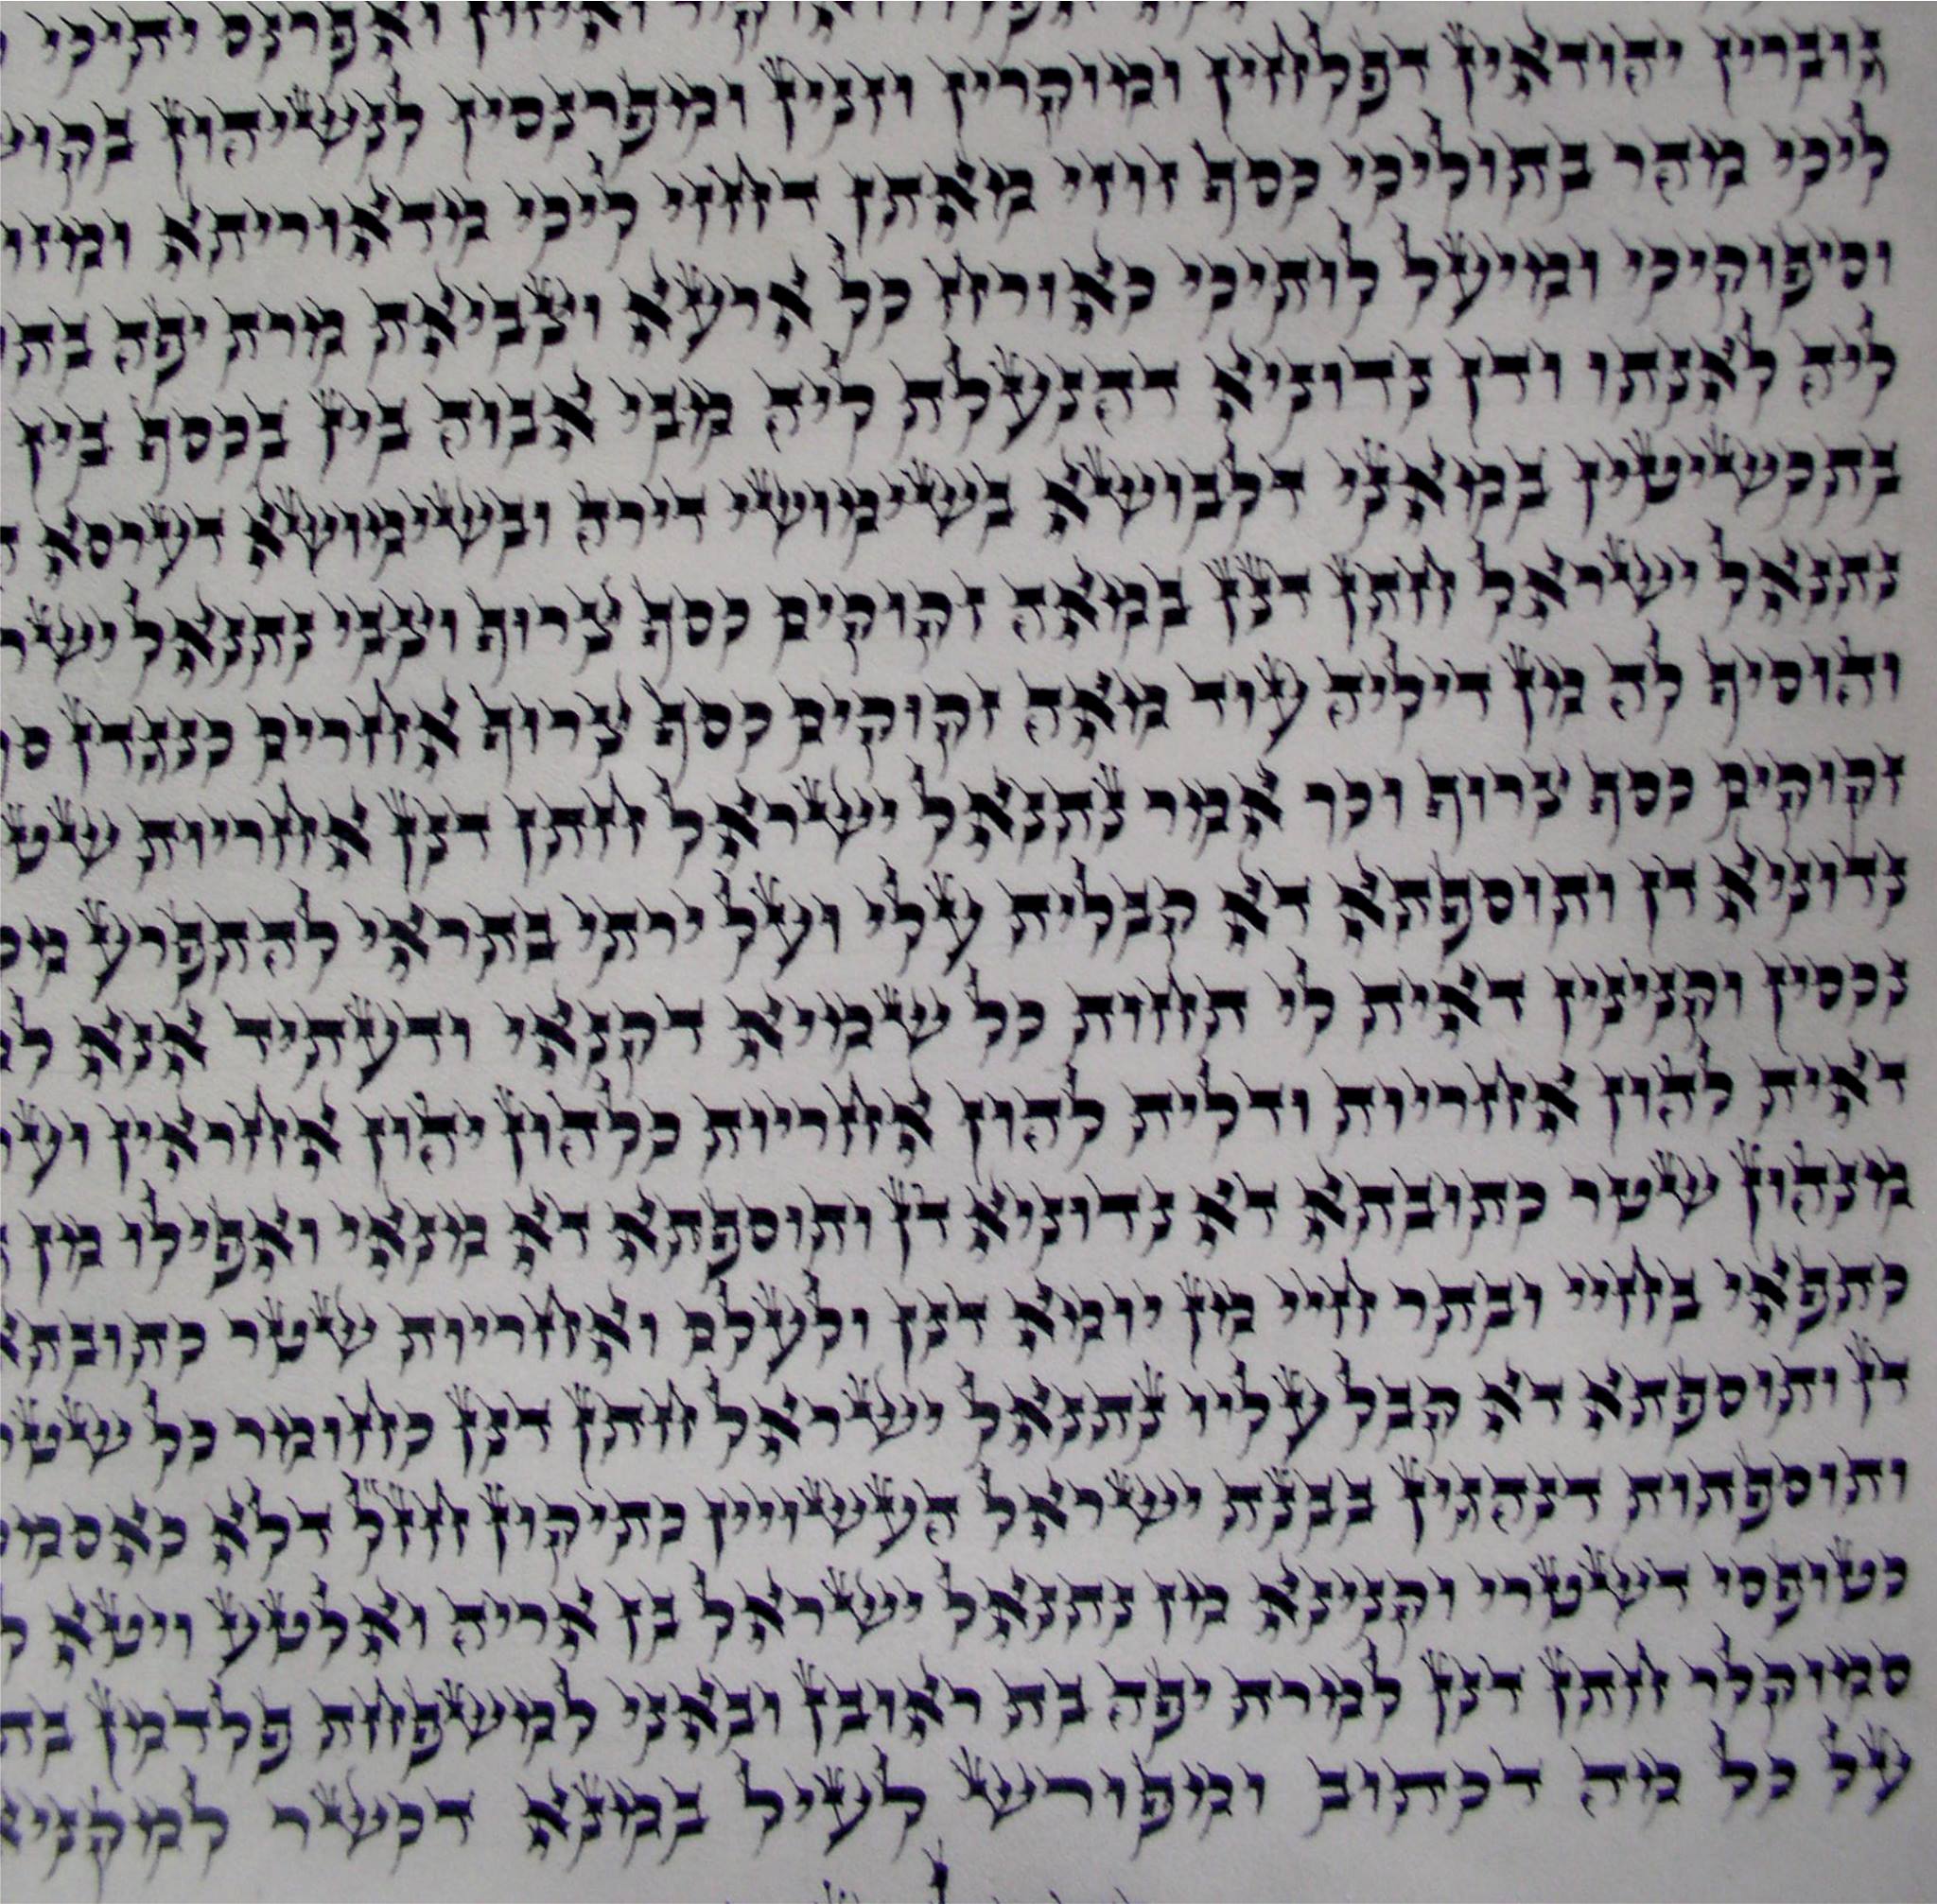 ואפרנס יתיכי
גוברין יהודאין דפלחין ומוקרין וזנין ומפרנסין לנשיהון
ליכי מהר בתוליכי כסף זוזי מאתן דחזי ליכי מדאוריתא
וסיפוקיכי ומיעל לותיכי כאורח כל ארעא וצביאת מרת יפה
ליה לאנתו ודן נדוניא דהנעלת ליה מבי אבוה בין בכסף בין
בתכשיטין במאני דלבושא בשימושי דירה ובשימושא דערסא
נתנאל ישראל חתן דנן במאה זקוקים כסף צרוף וצבי נתנאל
והוסיף לה מן דיליה עוד מאה זקוקים כסף צרוף אחרים כנגדן
זקוקים כסף צרוף וכך אמר נתנאל ישראל חתן דנן אחריות
נדוניא דן ותוספתא דא קבלית עלי ועל ירתי בתראי להתפרע
נכסין וקנינין דאית לי תחות כל שמיא דקנאי ודעתיד אנא
דאית להון אחריות ודלית להון אחריות כלהון יהון אחראין
מנהון שטר כתובתא דא נדוניא דן ותוספתא דא מנאי ואפילו מן
כתפאי בחיי ובתר חיי מן יומא דנן ולעלם ואחריות שטר
דן ותוספתא דא קבל עליו נתנאל ישראל חתן דנן כחומר כל
ותוספתות דנהגין בבנת ישראל העשויין כתיקון חזל דלא
כטופסי דשטרי וקנינא מן נתנאל ישראל בן אריה ואלטע ויטא
סמוקלר חתן דנן למרת יפה בת ראובן ובאני למשפחת פלדמן
על כל מה דכתוב ומפורש לעיל במנא דכשר